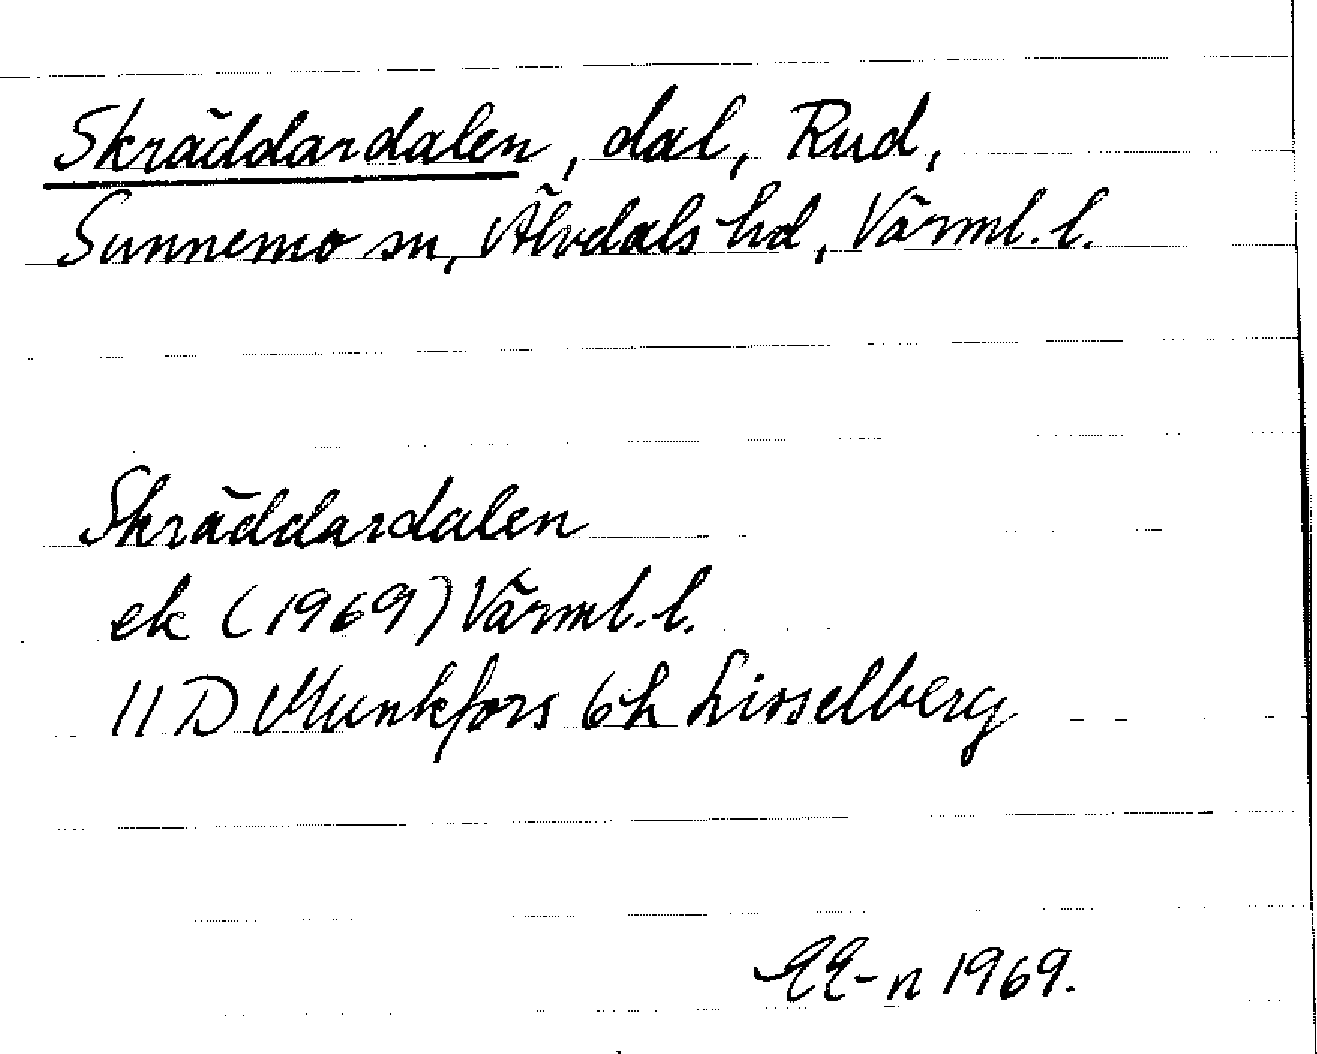 Skräddardalen, dal, Rud,
Sunnemo sn, Älvdals hd, Värml. l.
Skräddardalen
ek (1969) Värml. l.
11 D Munkfors 6h Lisselberg
EE-n 1969.